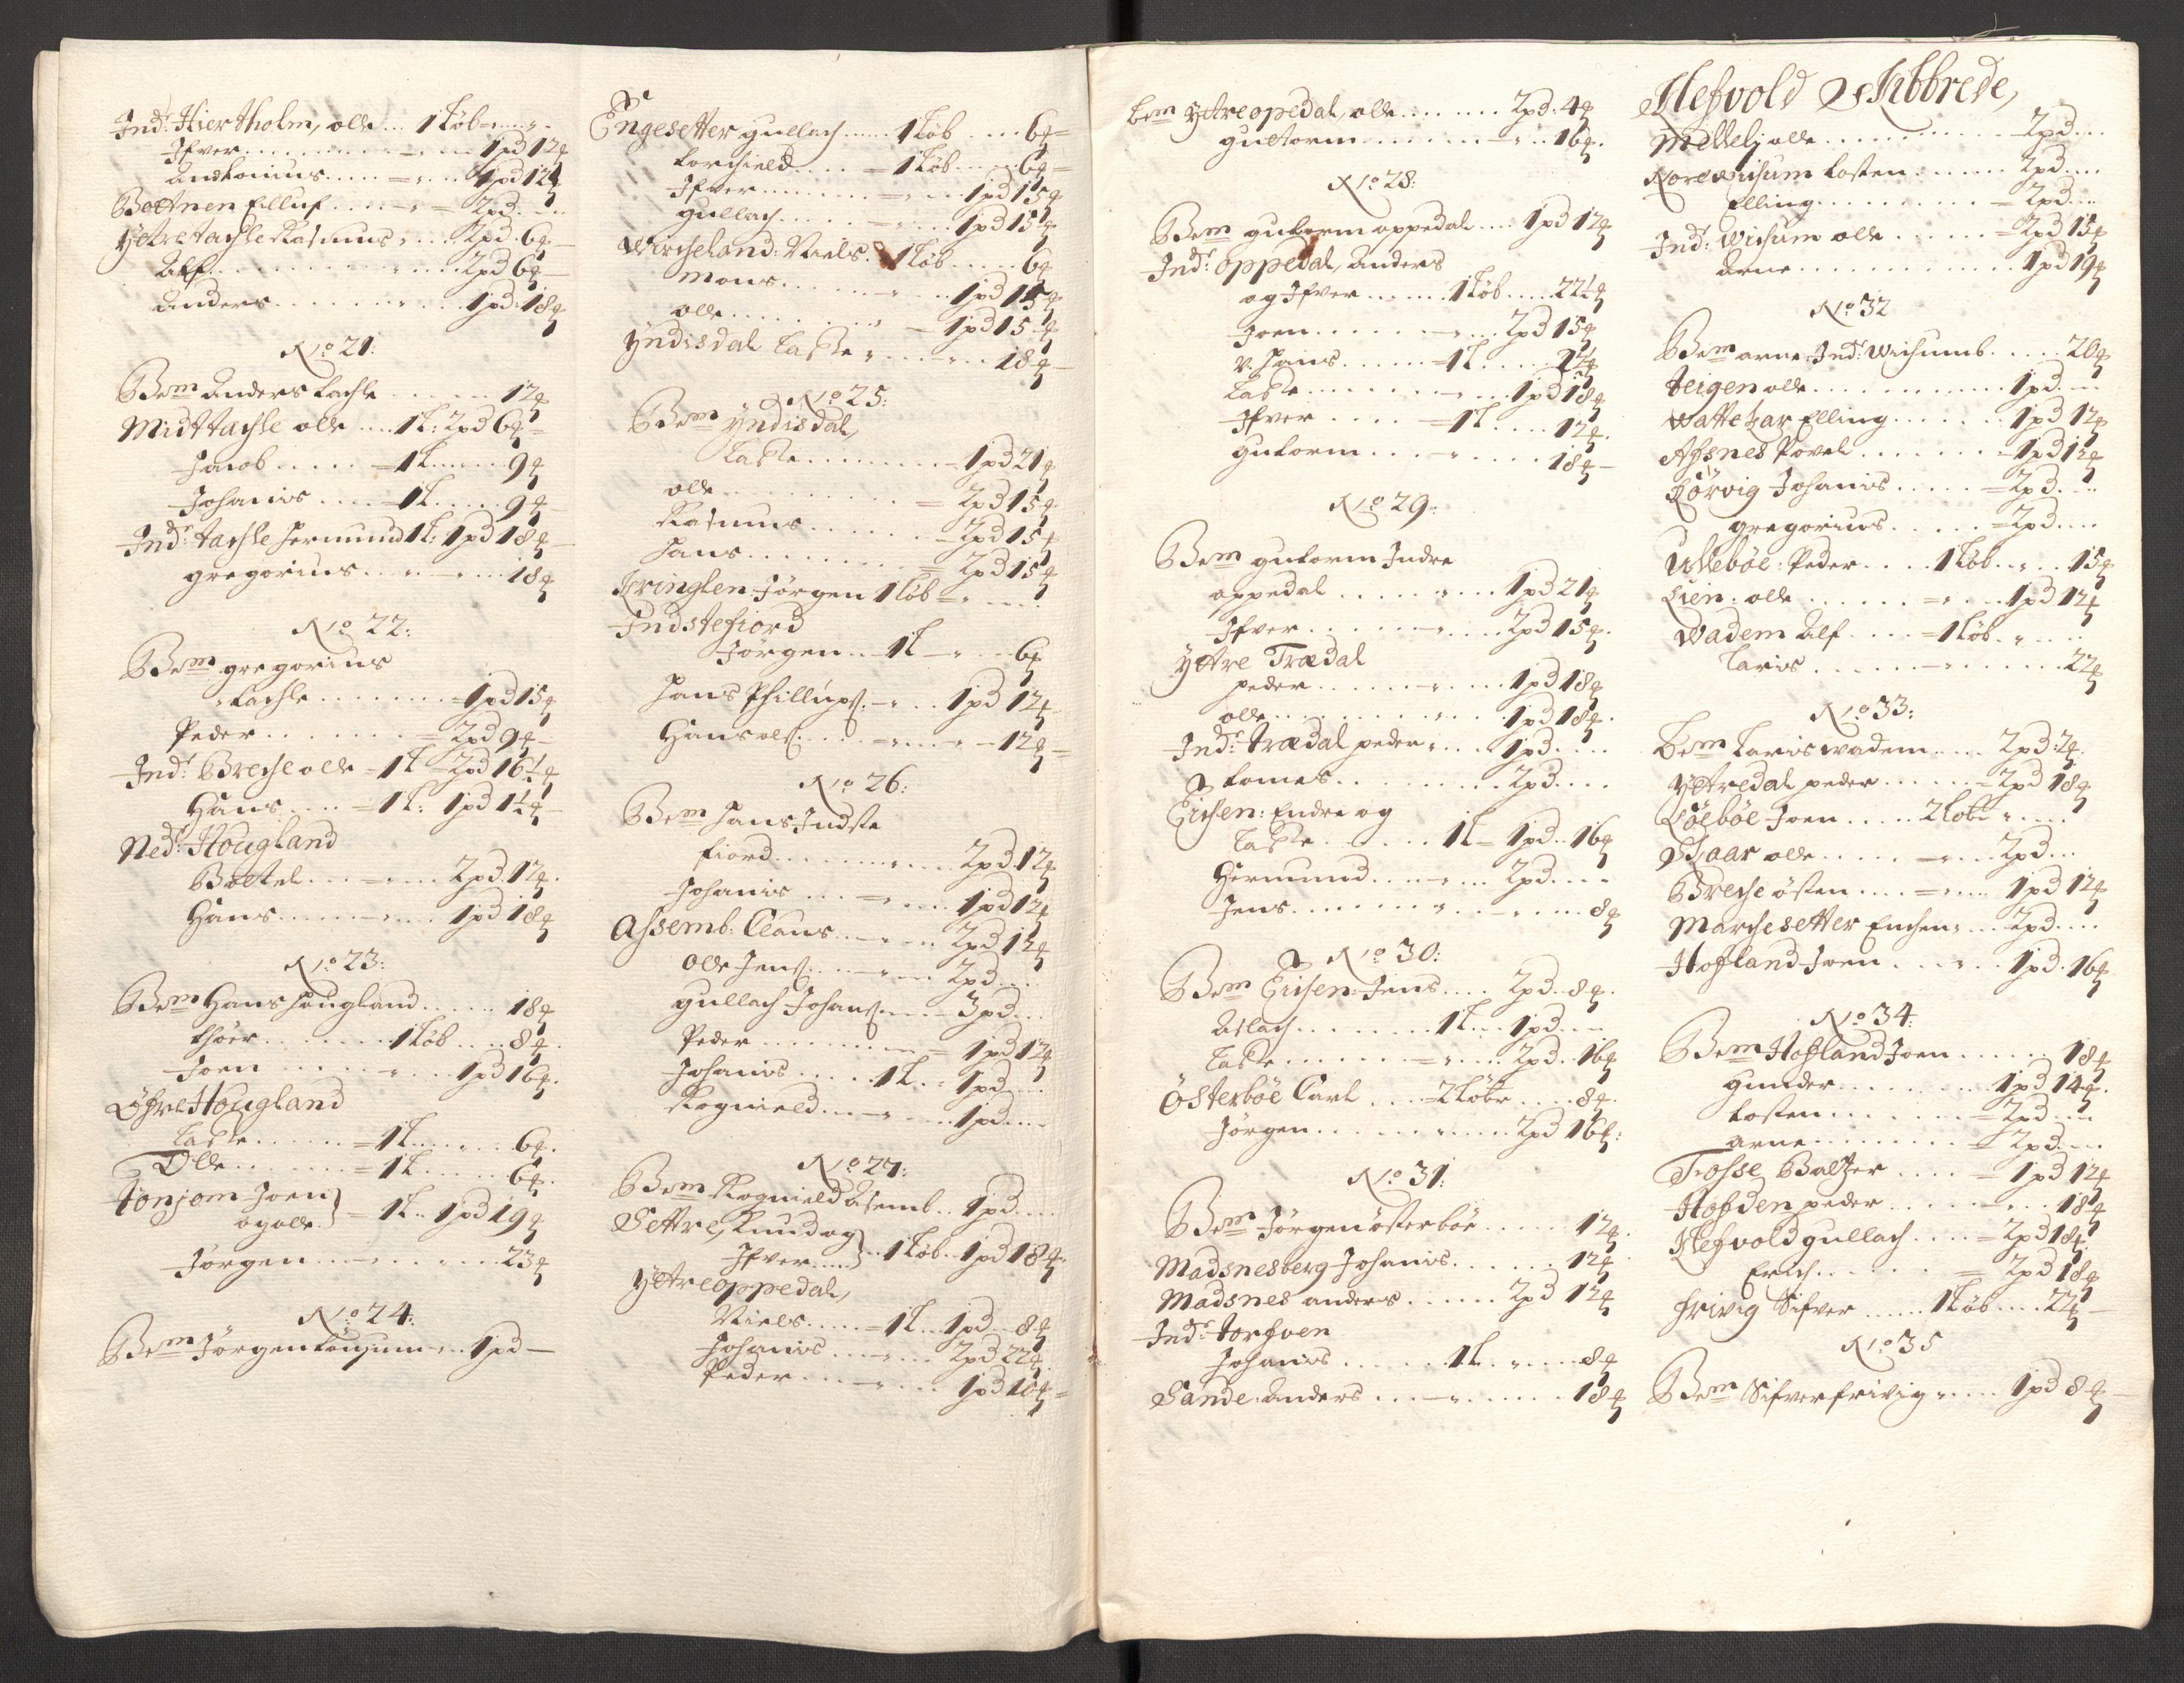 Indr: Hiertholm, olle ... 1 Løb
Ifver ... 1pd 12₰
Andtonius ... 1pd 12₰
Bottnen Elluf ... 2pd
Yttre tachle Rasmus ... 2pd 6₰
Alf ... 2pd 6₰
Anders ... 1pd 18₰
No 21:
Bem Anders tachle ... 12₰
Midttachle olle ... 1L: 2pd 6₰
Jacob ... 1L ... 9₰
Johanis ... 1L ... 9₰
Indr: tachle Hermund 1L: 1pd 18₰
gregorius ... 18₰
No 22:
Bem gregorius
tachle ... 1pd 15₰
Peder ... 2pd 9₰
Indr: Breche olle 1L 2pd 16½₰
Hans ... 1L: 1pd 1½₰
Nedr: Hougland
Bottel ... 2pd 12₰
Hans ... 1pd 18₰
No 23:
Bem Hans Hougland ... 18₰
thøer ... 1 Løb ... 8₰
Joen ... 1pd 16₰
Øfre Hougland
Lasse ... 1L ... 6₰
Olle ... 1L ... 6₰
tonjom Joen
og olle ... 1L 1pd 19₰
Jørgen ... 23₰
No 24:
Bem Jørgen tonjum ... 1pd
Engesetter gullach ... 1 Løb ... 6₰
torchield ... 1 Løb ... 6₰
Ifver ... 1pd 15₰
gullach ... 1pd 15₰
Wircheland: Niels ... 1 Løb ... 6₰
Mons ... 1pd 15₰
olle ... 1pd 15₰
Yndisdal Lasse ... 18₰
No 25:
Bem Yndisdal,
Lasse ... 1pd 21₰
olle ... 2pd 15₰
Rasmus ... 2pd 15₰
Hans ... 2pd 15₰
Kringlen Jørgen 1 Løb
Indstefiord
Jørgen ... 1L ... 6₰
Hans Phillips: ... 1pd 12₰
Hans ols: ... 12₰
No 26:
Bem Hans Indste
fiord ... 2pd 12₰
Johanis ... 1pd 12₰
Assemb: Claus ... 2pd 12₰
Olle Jens: ... 2pd
gullach Johans: ... 3pd
Peder ... 1pd 12₰
Johanis ... 1L ... 1pd
Rognield ... 1pd
No 27:
Bem Rognield Asemb ... 1pd
Settre, Knud og
Ifver ... 1 Løb 1pd 18₰
Yttreoppedal,
Niels ... 1L 1pd 8₰
Johanis ... 2pd 22₰
Peder ... 1pd 10₰
Bem Yttreopedal, olle ... 2pd: 4₰
guttorm ... 16₰
No 28:
Bem gutorm oppedal ... 1pd 12₰
Indr: oppedal, Anders
og Ifver ... 1 Løb ... 22½₰
Joen ... 2pd 15₰
v. Hans ... 1L
Lasse ... 1pd 18₰
Ifver ... 1L ... 12₰
Gutorm ... 18₰
No 29:
Bem gutorm Indre
oppedal ... 1pd 21₰
Ifver ... 2pd 15₰
Yttre Trædal
peder ... 1pd 18₰
olle ... 1pd 18₰
Indr: trædal peder ... 1pd
tomes ... 2pd
Eichen: Endre og
Lasse ... 1L 1pd 16₰
Hermund ... 2pd
Jens ... 8₰
No 30:
Bem Eichen: Jens ... 2pd 8₰
Aslach ... 1L 1pd
Lasse ... 2pd 16₰
Østerbøe Carl ... 2 Løbe ... 8₰
Jørgen ... 2pd 16₰
No 31:
Bem Jørgen østerbøe ... 12₰
Madsnesberg Johanis ... 12₰
Madsnes anders ... 2pd 12₰
Indr: torfven
Johanis ... 1L ... 8₰
Sande: Anders ... 18₰
Klefvold Schibbrede,
Melleli olle ... 2pd
Nore wichum tosten ... 2pd
Elling ... 2pd
Indr: Wichum olle ... 2pd 15₰
Arne ... 1pd 19₰
No 32
Bem arne Indr: Wichumb ... 20₰
teigen olle ... 1pd
Wattekar Elling ... 1pd 12₰
Afsnes Povel ... 1pd 12₰
Kørvig Johanis ... 2pd
gregorius ... 2pd
Ullebøe: Peder ... 1 Løb ... 15₰
Lien: olle ... 1pd 12₰
Wadem Alf ... 1 Løb
Laris ... 22₰
No 33:
Bem Laris wadem ... 2pd: 2₰
Yttredal peder ... 2pd 18₰
Løebøe Joen ... 2 Løbe
Schaar olle ... 2pd
Breche østen ... 1pd 12₰
Marchesetter Enchen ... 2pd
Hofland Joen ... 1pd 16₰
No 34:
Bem Hofland Joen ... 18₰
Gunder ... 1pd 14₰
tosten ... 2pd
arne ... 2pd
Fosse Baltzer ... 1pd 12₰
Hofden peder ... 18₰
Klefvold gullach ... 2pd 18₰
Erich ... 2pd 18₰
frivig Sifver ... 1 Løb ... 22₰
No 35
Bem Sifver frivig ... 1pd 8₰